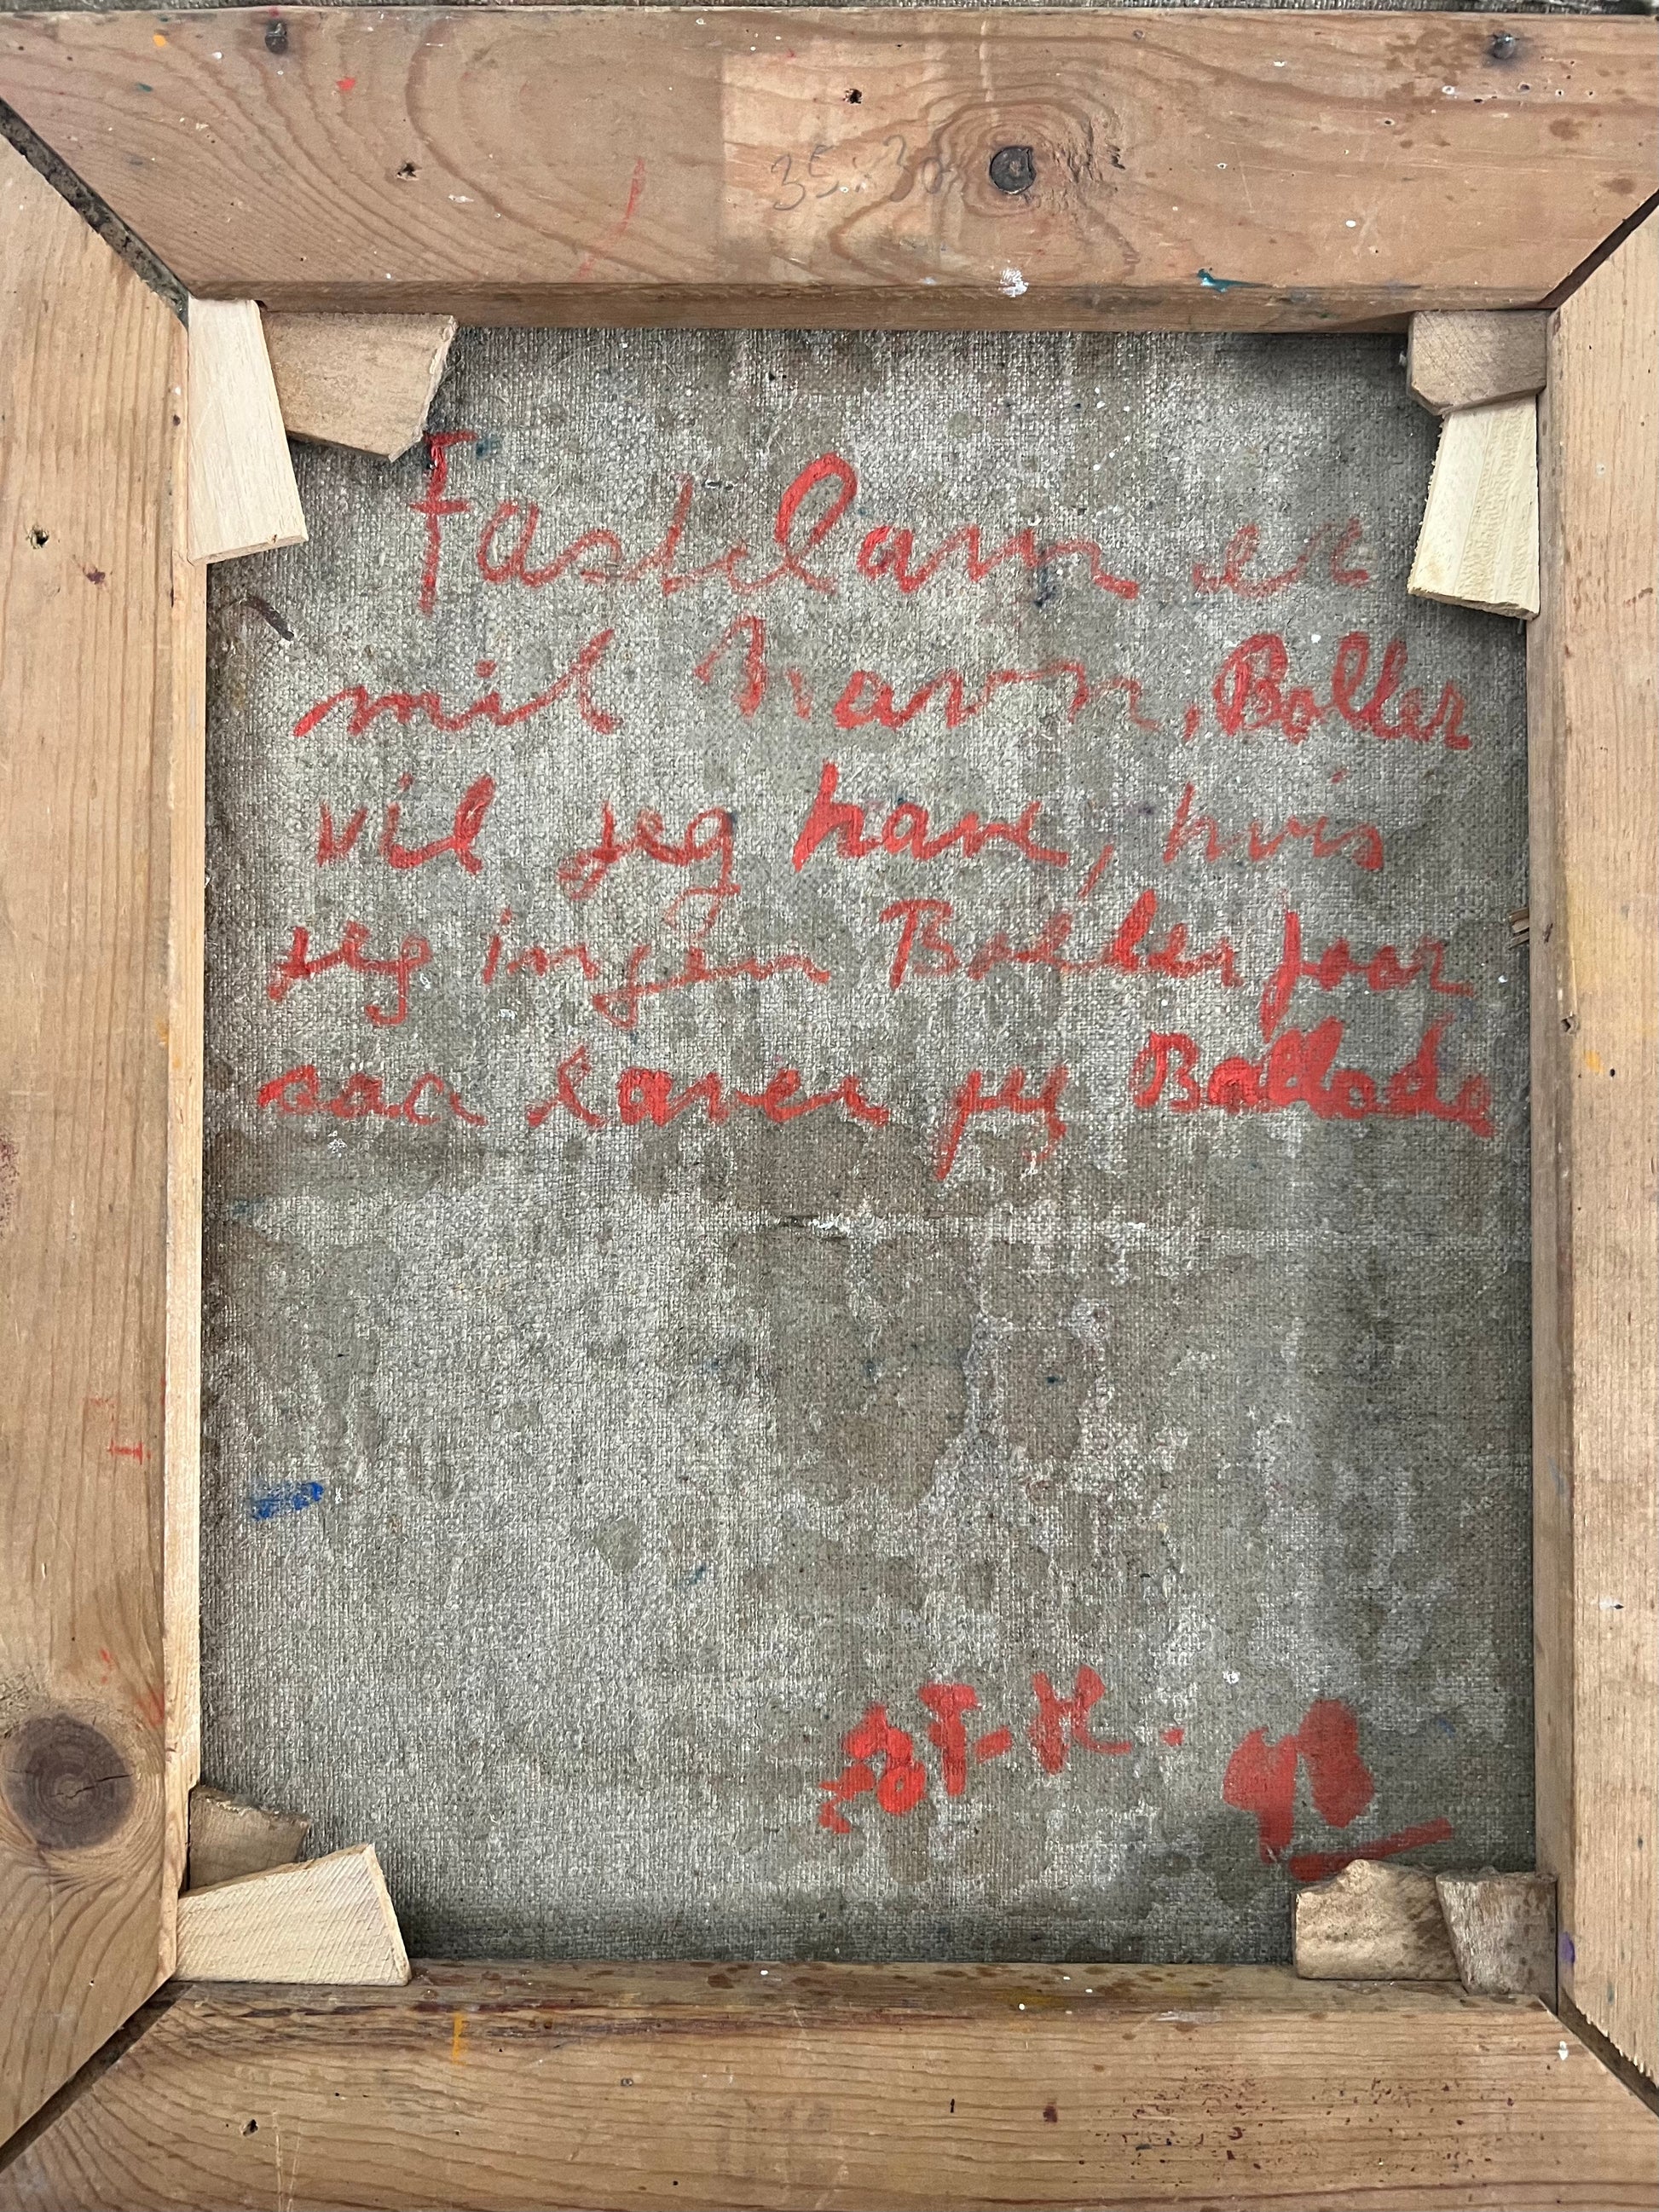 35x30
Fastelavn er
mit navn, Boller
vil jeg have, hvis
jeg ingen Boller faar
saa laver jeg Ballade